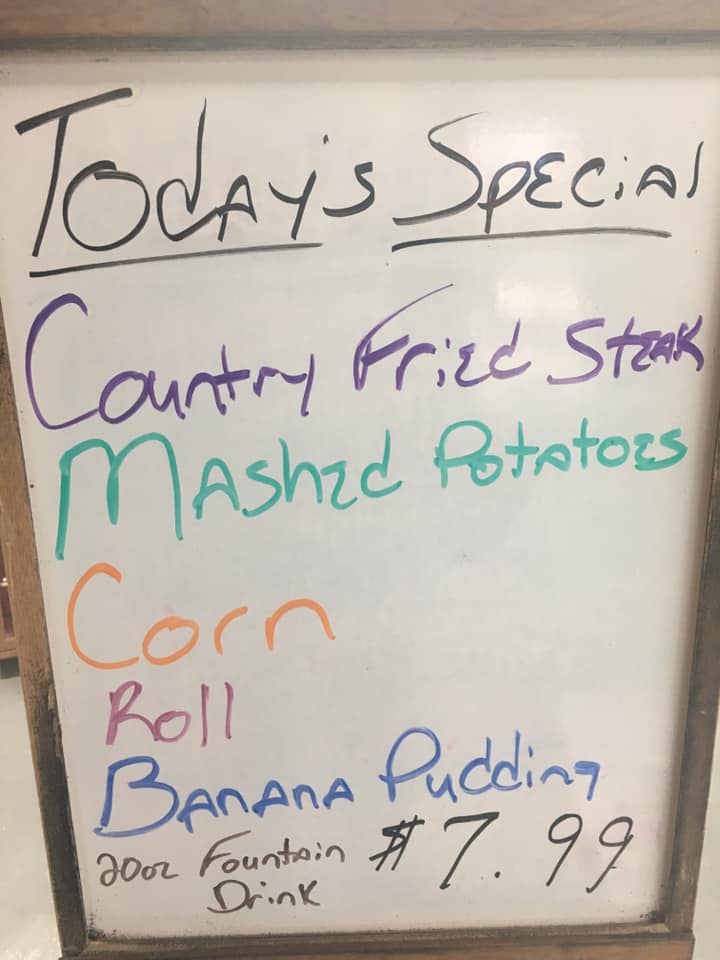 Today's Special
Country Fried Steak
Mashed Potatoes
Corn
Roll
Banana Pudding
20oz Fountain Drink $7.99